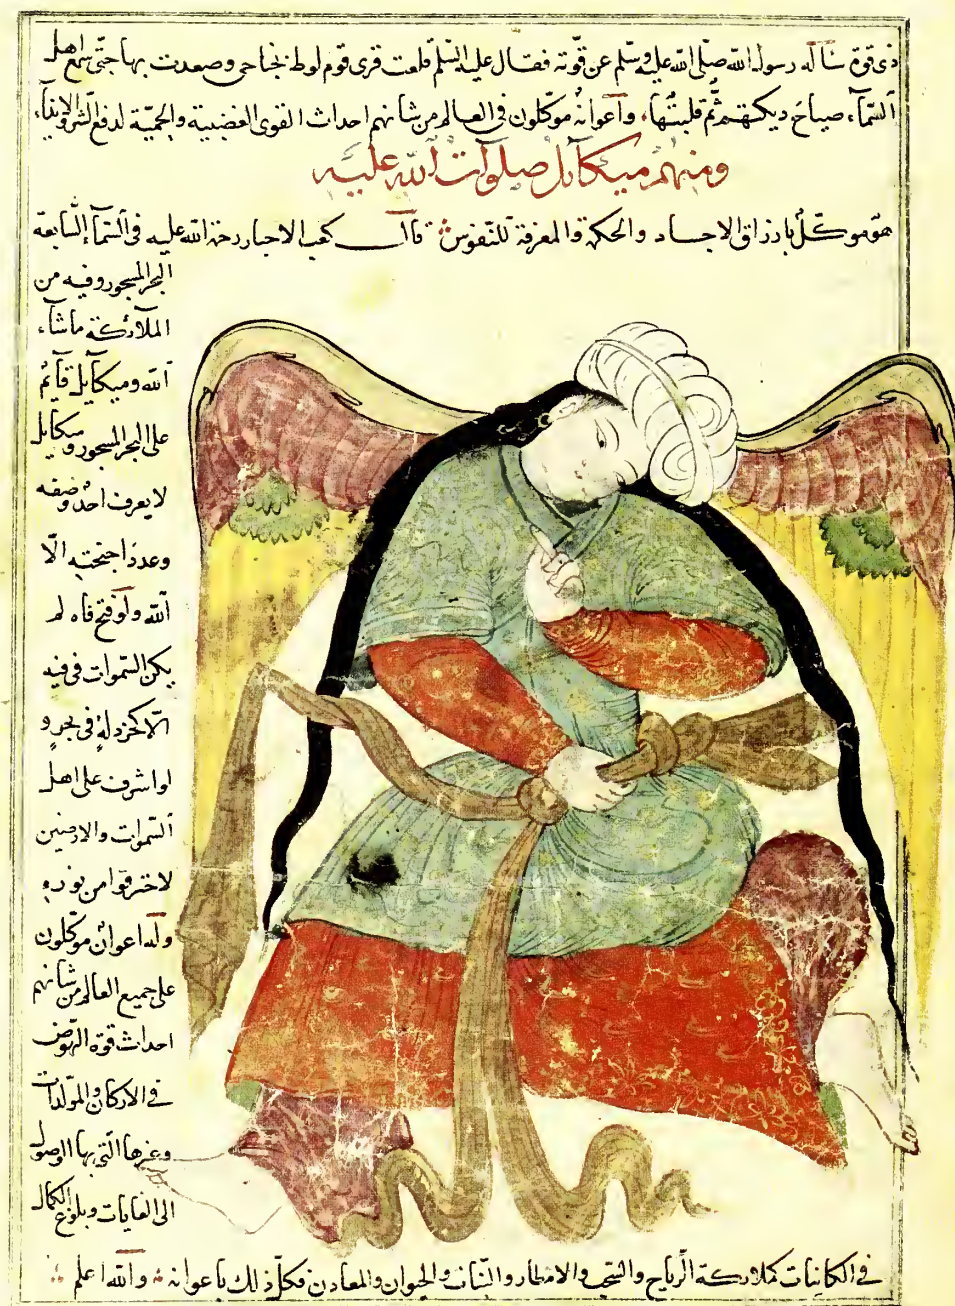 ذى قوة سأله رسول الله صلى الله عليه وسلم عن قوته فقال عليه السلم قلعت قرى قوم لوط بجناحى وصعدت بها حتى سمع اهل
السمآء صياح ديكتهم ثم قلبتها وأعوانه موكلون فى العالم من شانهم احداث القوى الغضبية والحمية لدفع الشر والايذآء
ومنهم ميكآئل صلوات الله عليه
هو موكل بارزاق الاجساد والحكمة والمعرفة للنفوس قال كعب الاحبار رحمة الله عليه فى السمآء السابعة
البحر المسجور وفيه من
الملآئكة ماشآء
الله وميكآيل قآئم
على البحر المسجور وميكآيل
لا يعرف احد وصفه
وعدد اجنحته الا
الله ولو فتح فاه لم
يكن السموات فى فيه
الا كخردلة فى بحر و
لو اشرف على اهل
السموات والارضين
لاخترقوا من نوره
وله اعوان موكلون
على جميع العالم من شانهم
احداث قوة النهوض
فى الاركان والمولدات
وغيرها التى بها الوصول
الى الغايات وبلوغ الكمال
فى الكاينات كملائكة الرياح والسحب والامطار والنبات والحيوان والمعادن فكل ذلك باعوانه والله اعلم